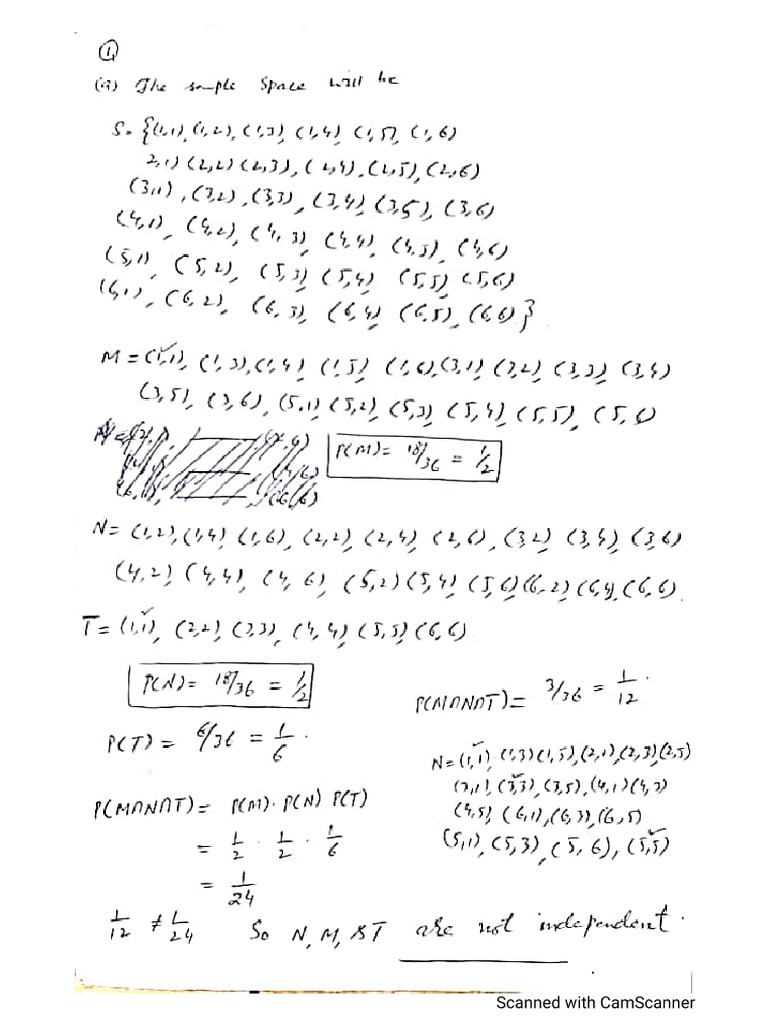 ①
(a) The sample space will be
S = {(1,1), (1,2), (1,3), (1,4), (1,5), (1,6)
2,1) (2,2) (2,3), (2,4), (2,5), (2,6)
(3,1), (3,2), (3,3), (3,4), (3,5), (3,6)
(4,1), (4,2), (4,3), (4,4), (4,5), (4,6)
(5,1), (5,2), (5,3), (5,4), (5,5), (5,6)
(6,1), (6,2), (6,3), (6,4), (6,5), (6,6)}
M = (1,1), (1,3), (1,4), (1,5), (1,6), (3,1), (3,2), (3,3), (3,4)
(3,5), (3,6), (5,1) (5,2), (5,3), (5,4), (5,5), (5,6)
P(M) = 18/36 = 1/2
N = (1,2), (1,4), (1,6), (2,2), (2,4), (2,6), (3,2), (3,4), (3,6)
(4,2), (4,4), (4,6), (5,2) (5,4), (5,6) (6,2) (6,4), (6,6).
T = (1,1), (2,2) (3,3), (4,4) (5,5) (6,6)
P(N) = 18/36 = 1/2
P(T) = 6/36 = 1/6.
P(M∩N∩T) = P(M)·P(N) P(T)
= 1/2 · 1/2 · 1/6
= 1/24
P(M∩N∩T) = 3/36 = 1/12.
N = (1,1), (1,3) (1,5), (2,1), (2,3), (2,5)
(3,1), (3,3), (3,5), (4,1) (4,3)
(4,5), (6,1), (6,3), (6,5)
(5,1), (5,3), (5,6), (5,5)
1/12 ≠ 1/24 So N, M, & T are not independent.
Scanned with CamScanner